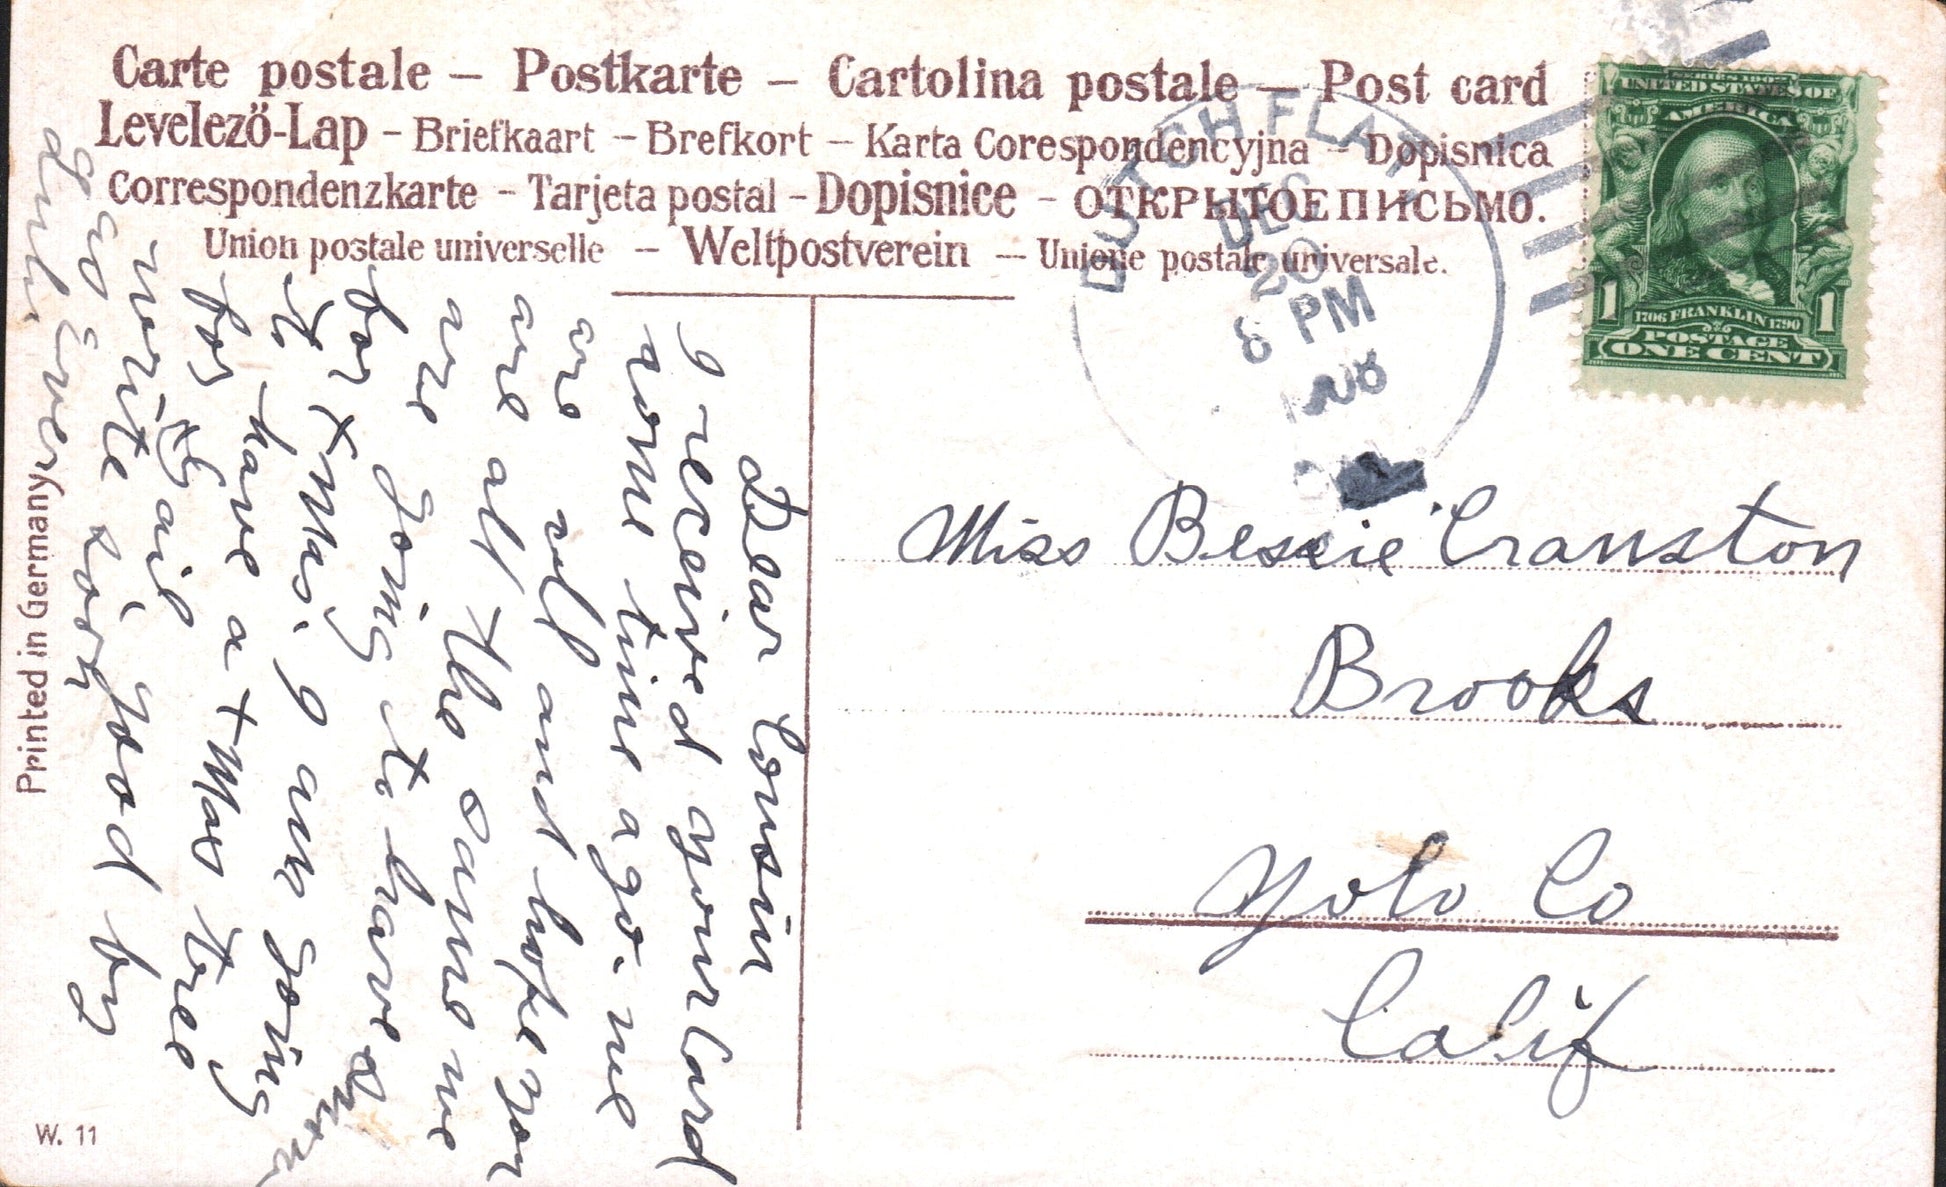 Carte postale – Postkarte – Cartolina postale – Post card
Levelezö-Lap – Briefkaart – Brefkort – Karta Corespondencyjna – Dopisnica
Correspondenzkarte – Tarjeta postal – Dopisnice – ОТКРЫТОЕ ПИСЬМО.
Union postale universelle – Weltpostverein – Unione postale universale.
DUTCH FLAT
DEC
20
8 PM
SERIES 1902
UNITED STATES OF
AMERICA
1 1706 FRANKLIN 1790 1
POSTAGE
ONE CENT
Dear Cousin
I received your Card
some time ago. we
are well and hope you
are all the same we
are going to have snow
for X mas. I am going
to have a X mas tree
for Gail
write soon good by
Miss Bessie Cranston
Brooks
Yolo Co
Calif
Printed in Germany
W. 11